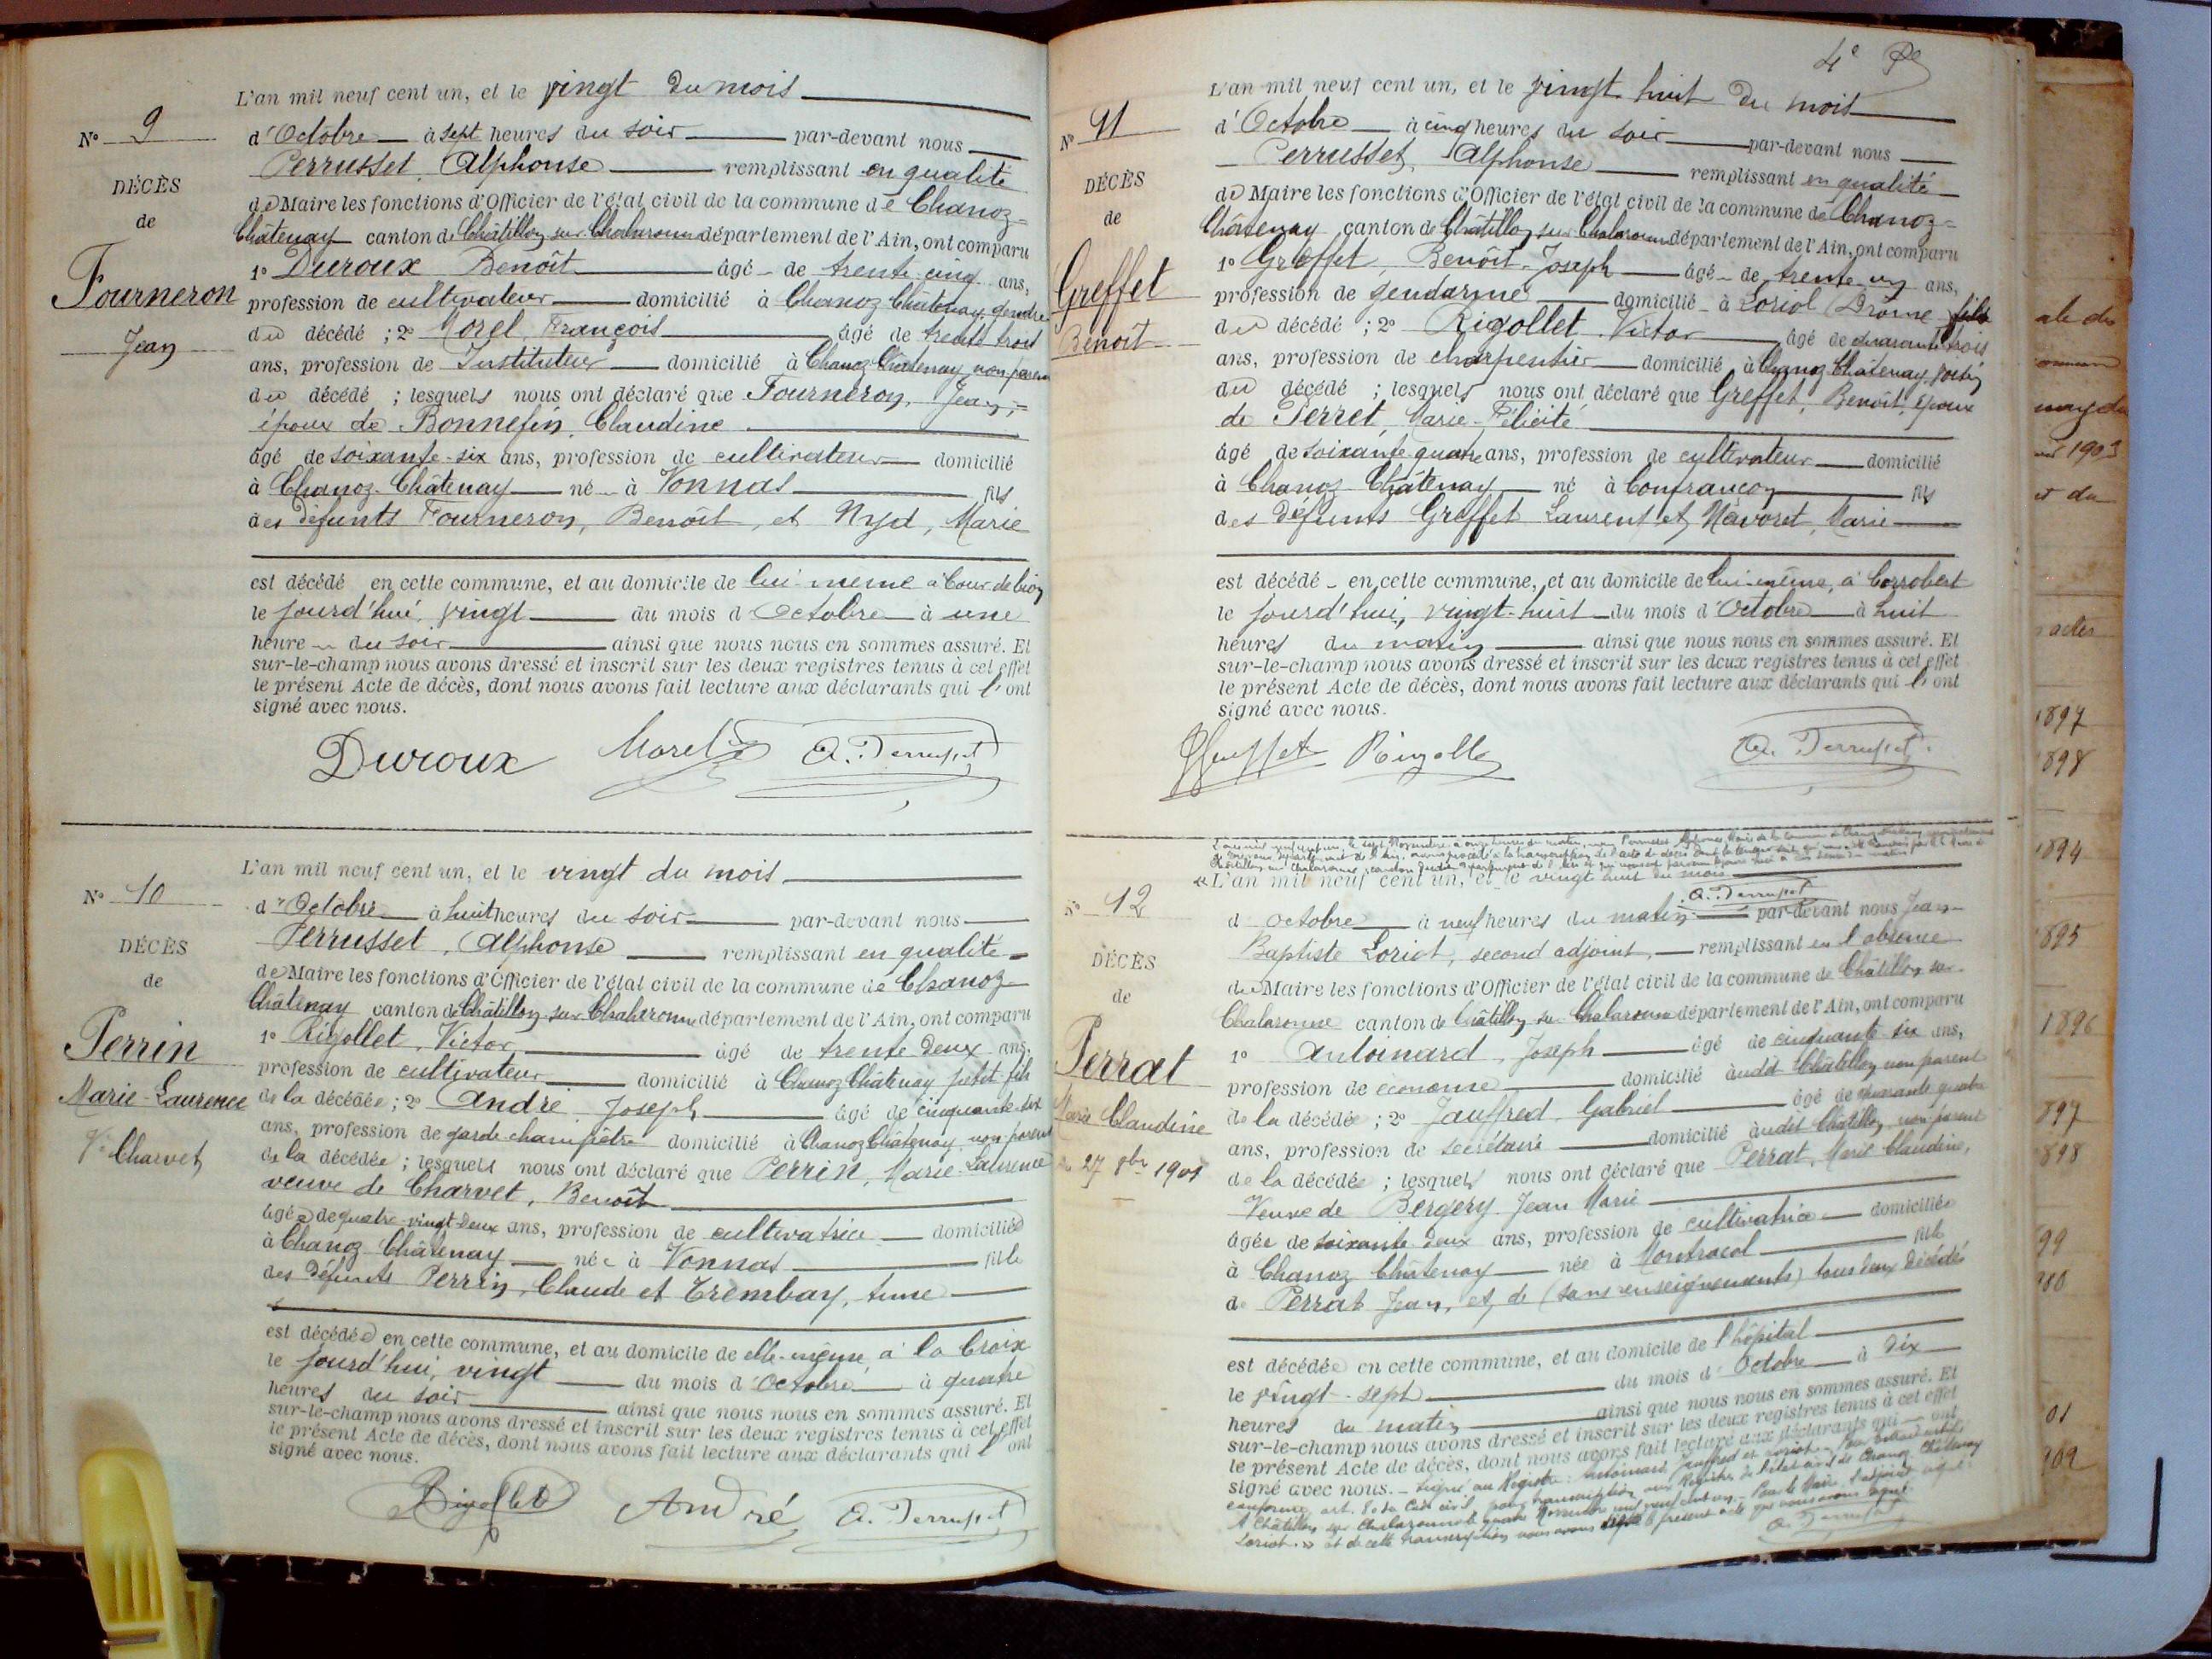 L'an mil neuf cent un, et le vingt du mois
N° 9
d'Octobre à sept heures du soir par-devant nous
Perrusset, Alphonse remplissant en qualité
DÉCÈS
de Maire les fonctions d'Officier de l'état civil de la commune de Chanoz-
de
Châtenay canton de Châtillon sur Chalaronne département de l'Ain, ont comparu
1° Duroux Benoît âgé de trente cinq ans,
Fourneron
profession de cultivateur domicilié à Chanoz Châtenay, gendre
du décédé ; 2° Morel, François âgé de trente trois
Jean
ans, profession de Instituteur domicilié à Chanoz Châtenay, non parent
du décédé ; lesquels nous ont déclaré que Fourneron, Jean,
époux de Bonnefin, Claudine
âgé de soixante-six ans, profession de cultivateur domicilié
à Chanoz-Châtenay né à Vonnas fils
des défunts Fourneron, Benoît, et Nyd, Marie
est décédé en cette commune, et au domicile de lui-même à
le jourd'hui, vingt du mois d'Octobre à une
heure du soir ainsi que nous nous en sommes assuré. Et
sur-le-champ nous avons dressé et inscrit sur les deux registres tenus à cet effet
le présent Acte de décès, dont nous avons fait lecture aux déclarants qui l'ont
signé avec nous.
Duroux Morel A. Perrusset
L'an mil neuf cent un, et le vingt du mois
N° 10
d'Octobre à huit heures du soir par-devant nous
Perrusset, Alphonse remplissant en qualité
DÉCÈS
de Maire les fonctions d'Officier de l'état civil de la commune de Chanoz-
de
Châtenay canton de Châtillon sur Chalaronne département de l'Ain, ont comparu
1° Rigollet, Victor âgé de trente deux ans,
Perrin
profession de cultivateur domicilié à Chanoz Châtenay petit fils
Marie-Laurence
de la décédée ; 2° André Joseph âgé de cinquante-six
ans, profession de garde champêtre domicilié à Chanoz Châtenay non parent
Ve Charvet
de la décédée ; lesquels nous ont déclaré que Perrin, Marie-Laurence
veuve de Charvet, Benoît
âgée de quatre-vingt-deux ans, profession de cultivatrice domiciliée
à Chanoz-Châtenay née à Vonnas fille
des défunts Perrin, Claude et Trembay,
est décédée en cette commune, et au domicile de elle-même, à la Croix
le jourd'hui, vingt du mois d'Octobre à quatre
heures du soir ainsi que nous nous en sommes assuré. Et
sur-le-champ nous avons dressé et inscrit sur les deux registres tenus à cet effet
le présent Acte de décès, dont nous avons fait lecture aux déclarants qui l'ont
signé avec nous.
Rigollet André A. Perrusset
4e
L'an mil neuf cent un, et le vingt-huit du mois
N° 11
d'Octobre à cinq heures du soir par-devant nous
Perrusset, Alphonse remplissant en qualité
DÉCÈS
de Maire les fonctions d'Officier de l'état civil de la commune de Chanoz-
de
Châtenay canton de Châtillon sur Chalaronne département de l'Ain, ont comparu
1° Greffet, Benoît-Joseph âgé de trente un ans,
Greffet
profession de gendarme domicilié à Loriol (Drôme) fils
Benoît
du décédé ; 2° Rigollet Victor âgé de quarante trois
ans, profession de charpentier domicilié à Chanoz Châtenay, voisin
du décédé ; lesquels nous ont déclaré que Greffet, Benoît, époux
de Perret, Marie-Félicité
âgé de soixante quatre ans, profession de cultivateur domicilié
à Chanoz Châtenay né à Confrançon fils
des défunts Greffet Laurent et Navoret, Marie
est décédé en cette commune, et au domicile de lui-même, à Corrobert
le jourd'hui, vingt-huit du mois d'Octobre à huit
heures du matin ainsi que nous nous en sommes assuré. Et
sur-le-champ nous avons dressé et inscrit sur les deux registres tenus à cet effet
le présent Acte de décès, dont nous avons fait lecture aux déclarants qui l'ont
signé avec nous.
Greffet Rigollet A. Perrusset
L'an mil neuf cent un, le sept Novembre à onze heures du matin, nous Perrusset Alphonse, Maire de la commune de Chanoz Châtenay
« L'an mil neuf cent un, et le vingt huit du mois
A. Perrusset
N° 12
d'octobre à neuf heures du matin par-devant nous Jean-
Baptiste Loriot, second adjoint, remplissant en l'absence
DÉCÈS
du Maire les fonctions d'Officier de l'état civil de la commune de Châtillon sur
de
Chalaronne canton de Châtillon sur Chalaronne département de l'Ain, ont comparu
1° Antoinard, Joseph âgé de cinquante six ans,
Perrat
profession de économe domicilié audit Châtillon non parent
Marie Claudine
de la décédée ; 2° Jauffred, Gabriel âgé de quarante quatre
ans, profession de secrétaire domicilié audit Châtillon, non parent
27 8bre 1901
de la décédée ; lesquels nous ont déclaré que Perrat, Marie Claudine,
Veuve de Bergery Jean Marie
âgée de soixante deux ans, profession de cultivatrice domiciliée
à Chanoz Châtenay née à Montracol fille
de Perrat Jean, et de (sans renseignements) tous deux décédés
est décédée en cette commune, et au domicile de l'hôpital
le vingt-sept du mois d'Octobre à dix
heures du matin ainsi que nous nous en sommes assuré. Et
sur-le-champ nous avons dressé et inscrit sur les deux registres tenus à cet effet
le présent Acte de décès, dont nous avons fait lecture aux déclarants qui ont
signé avec nous. – Signé au Registre : Antoinard, Jauffred et Loriot. – Pour extrait
conforme art. 80 du Code civil, pour transcription aux Registres de l'état civil de Chanoz Châtenay
A Châtillon sur Chalaronne le quatre Novembre mil neuf cent un. – Pour le Maire, l'adjoint signé :
Loriot. » et de cette transcription nous avons dressé le présent acte que nous avons signé.
A. Perrusset
1903
actes
1897
1898
1894
1895
1896
897
898
99
901
902